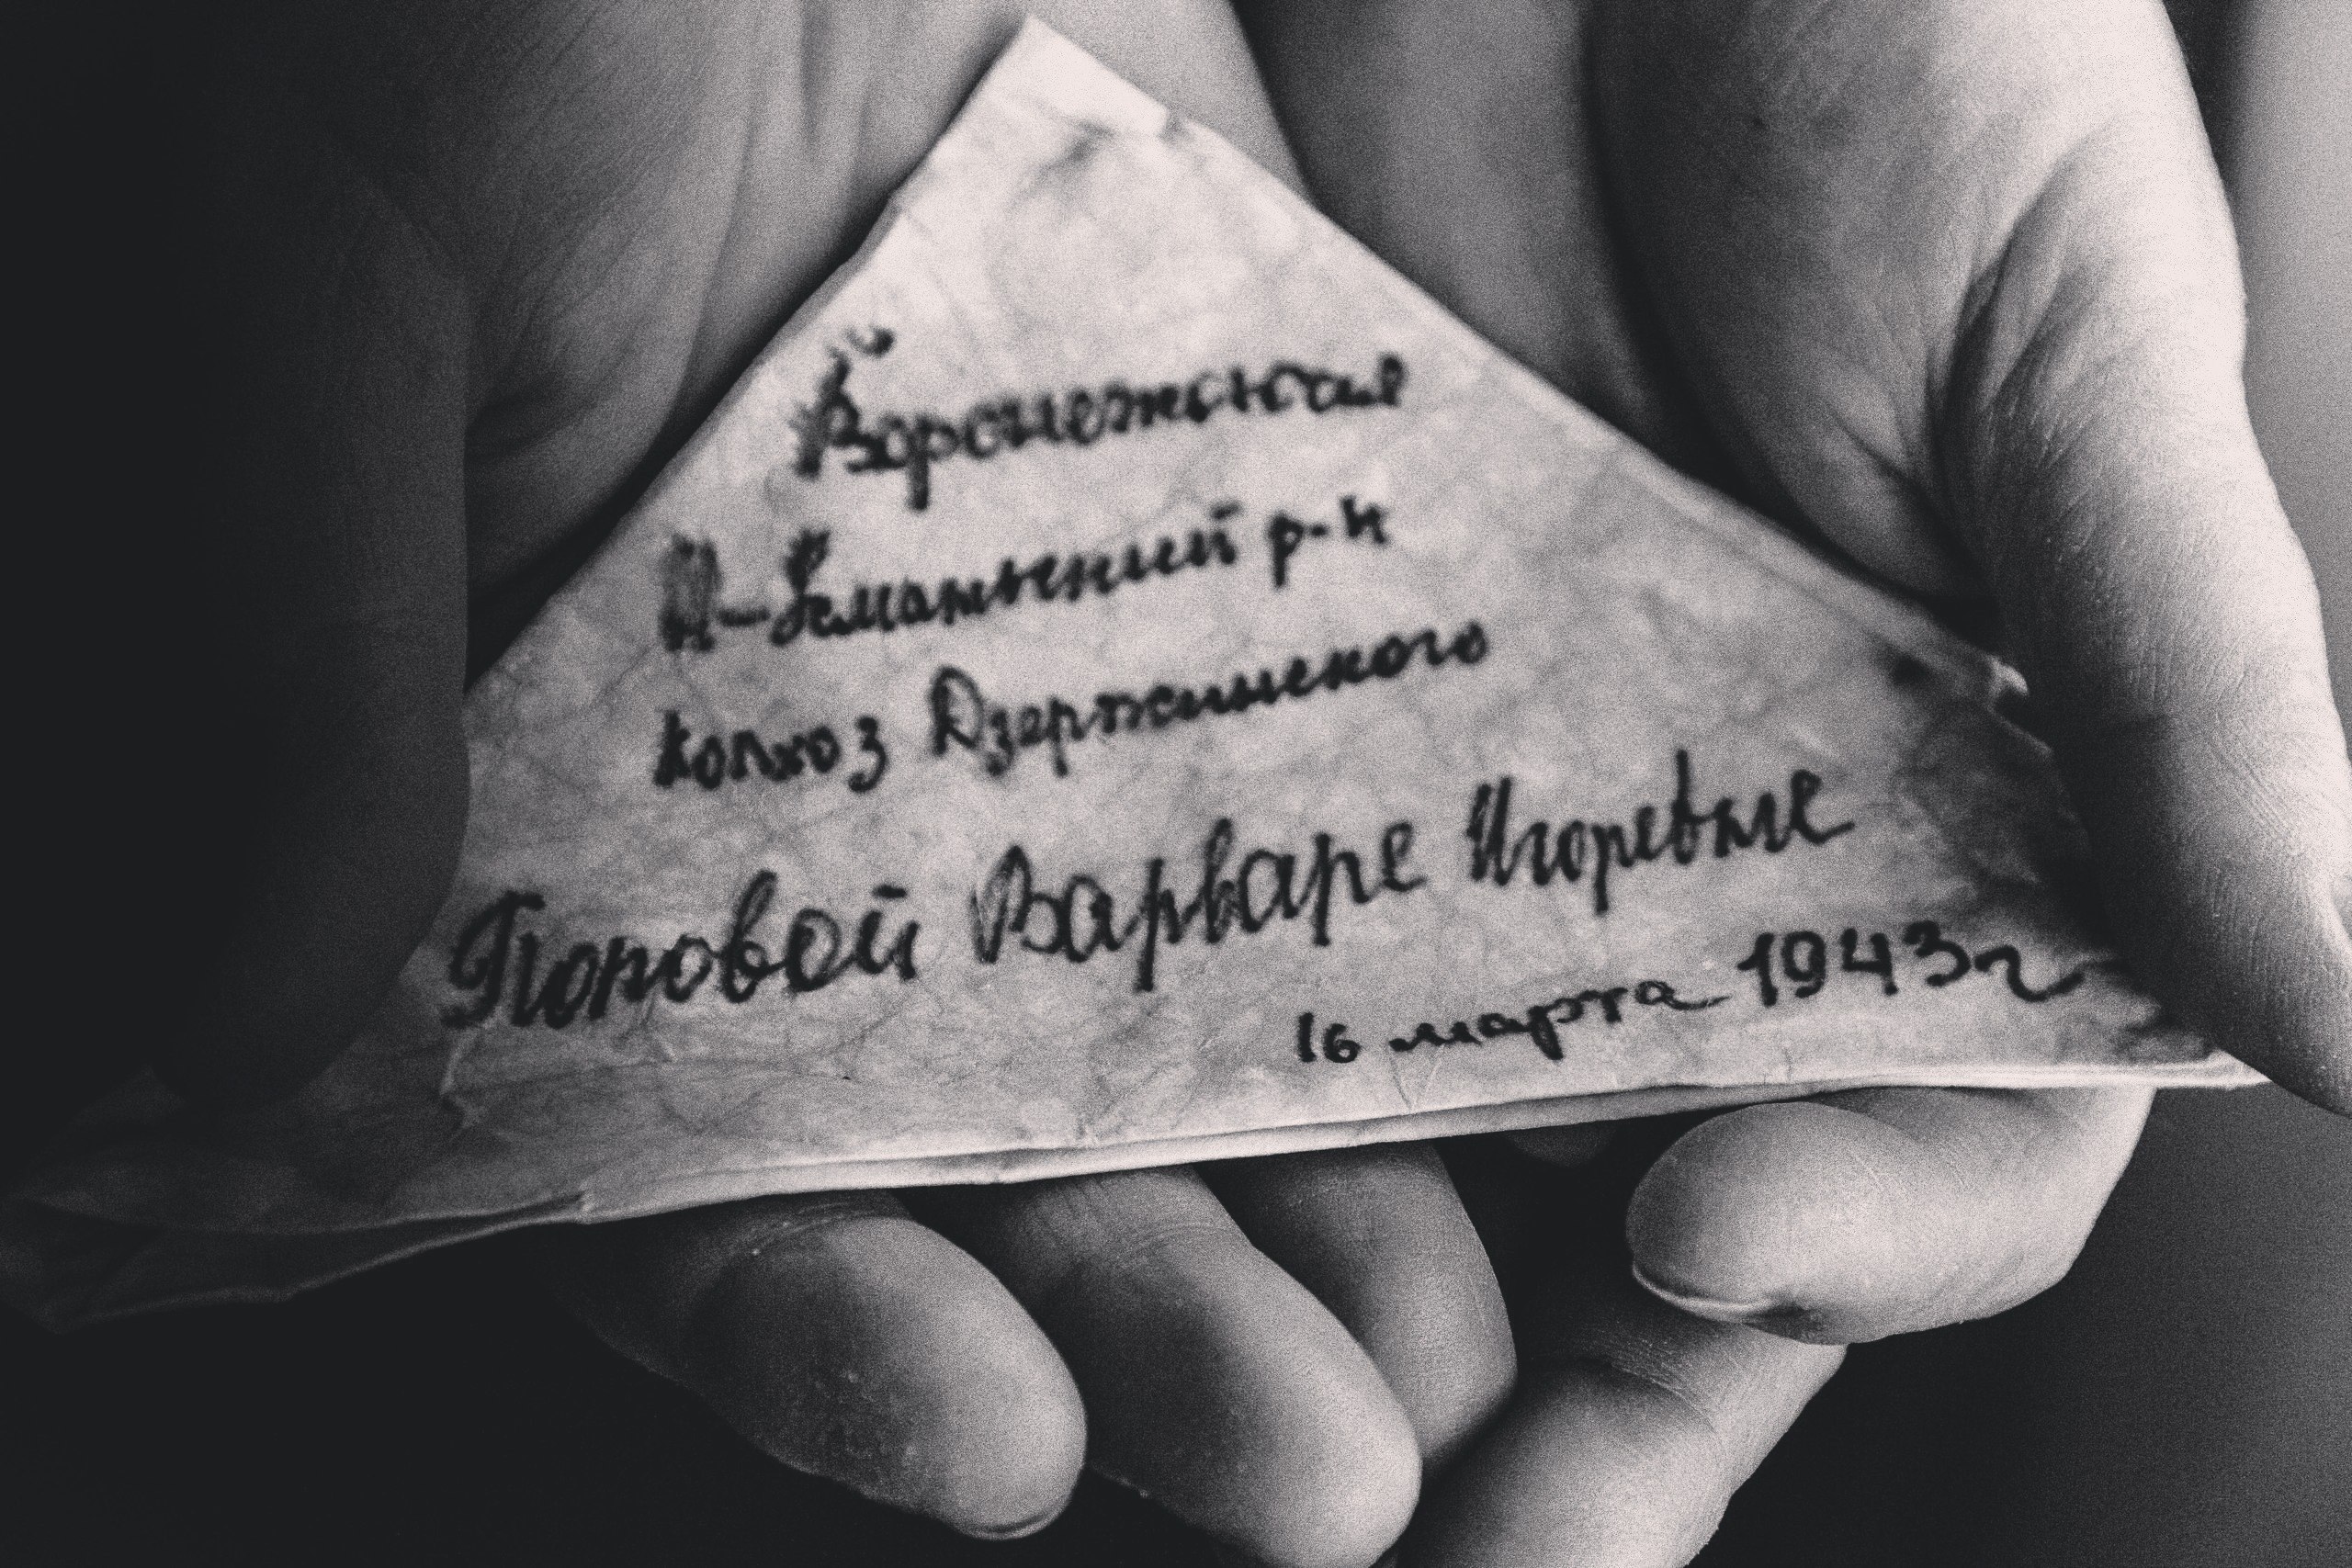 Воронежская
Н-Усманьский р-н
колхоз Дзержинского
Поповой Варваре Игоревне
16 марта 1943г